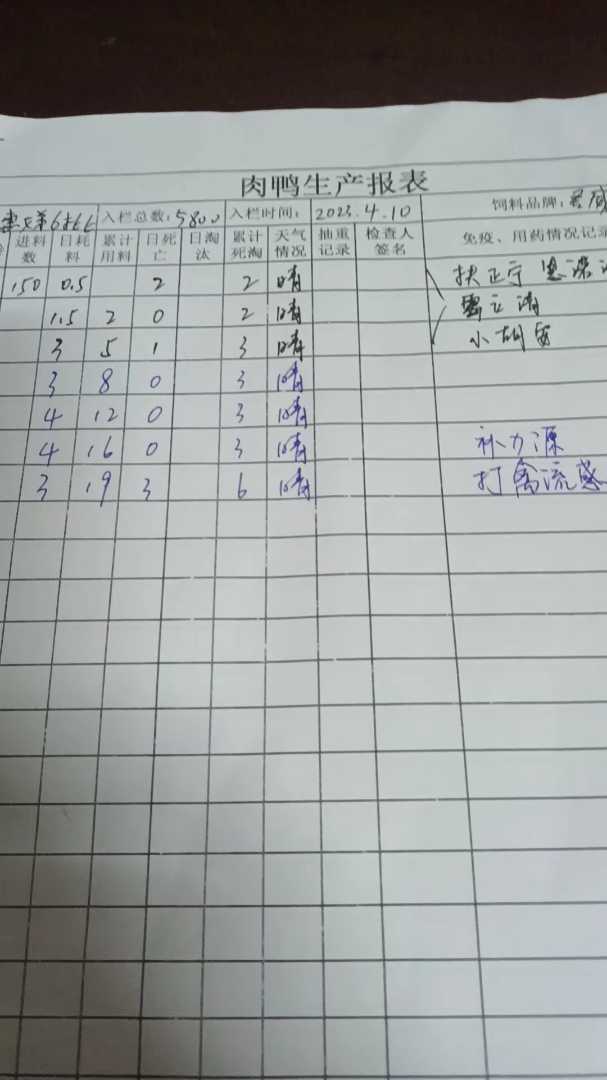 肉鸭生产报表
入栏总数: 5800 入栏时间: 2023.4.10 饲料品牌:
进料数 日耗料 累计用料 日死亡 日淘汰 累计死淘 天气情况 抽重记录 检查人签名 免疫、用药情况记录
150 0.5 2 2 晴 扶正宁
1.5 2 0 2 晴
3 5 1 3 晴
3 8 0 3 晴
4 12 0 3 晴
4 16 0 3 晴 补力源
3 19 3 6 晴 打禽流感